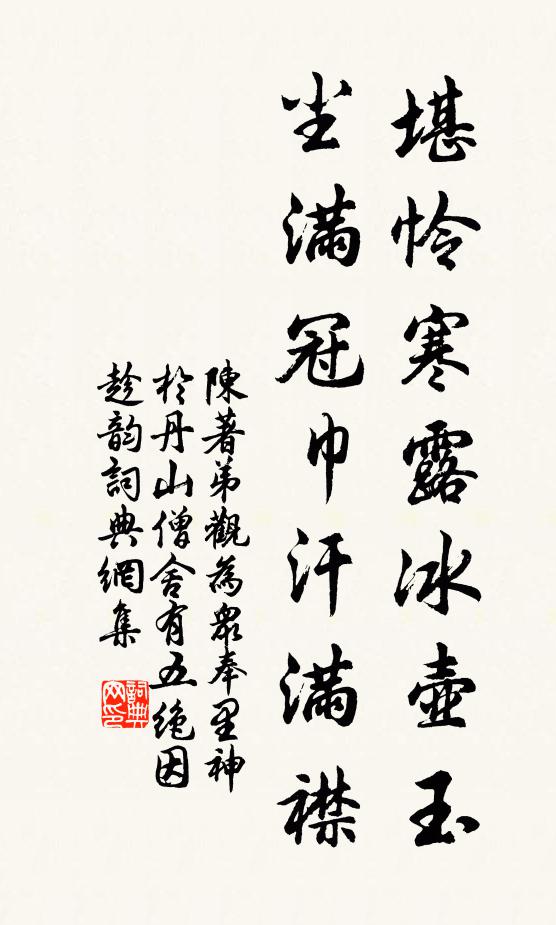 堪怜寒露冰壺玉
尘滿冠巾汗滿襟
陳著弟觀為衆奉里神
於丹山僧舍有五絶因
趁韵詞典網集
詞典网印